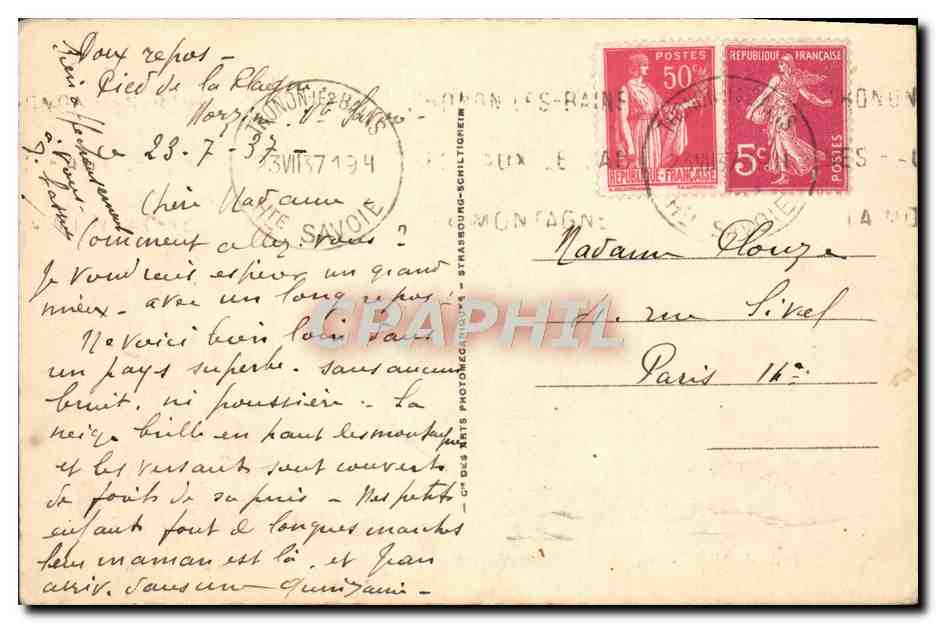 Doux repos -
Pied de la Plagne
Morzine. Hte Savoie -
le 23-7-37 -
Chère Madame -
Comment allez-vous ?
Je voudrais espérer un grand
mieux - avec un long repos !
Me voici bien loin dans
un pays superbe - sans aucun
bruit, ni poussière - La
neige brille en haut des montagnes
et les versants sont couverts
de forêts de sapins - Mes petits
enfants font de longues marches
leur maman est là, et Jean
arriv. dans une quinzaine -
Bien affectueusement
à vous -
THONON-LES-BAINS
23 VII 37 19 4
Hte SAVOIE
THONON-LES-BAINS
MONTAGNE
Cie DES ARTS PHOTOMÉCANIQUES - STRASBOURG-SCHILTIGHEIM
POSTES
50 c.
RÉPUBLIQUE-FRANÇAISE
RÉPUBLIQUE FRANÇAISE
5c
POSTES
Madame Plouze
rue Sivel
Paris 14e
CPAPHIL